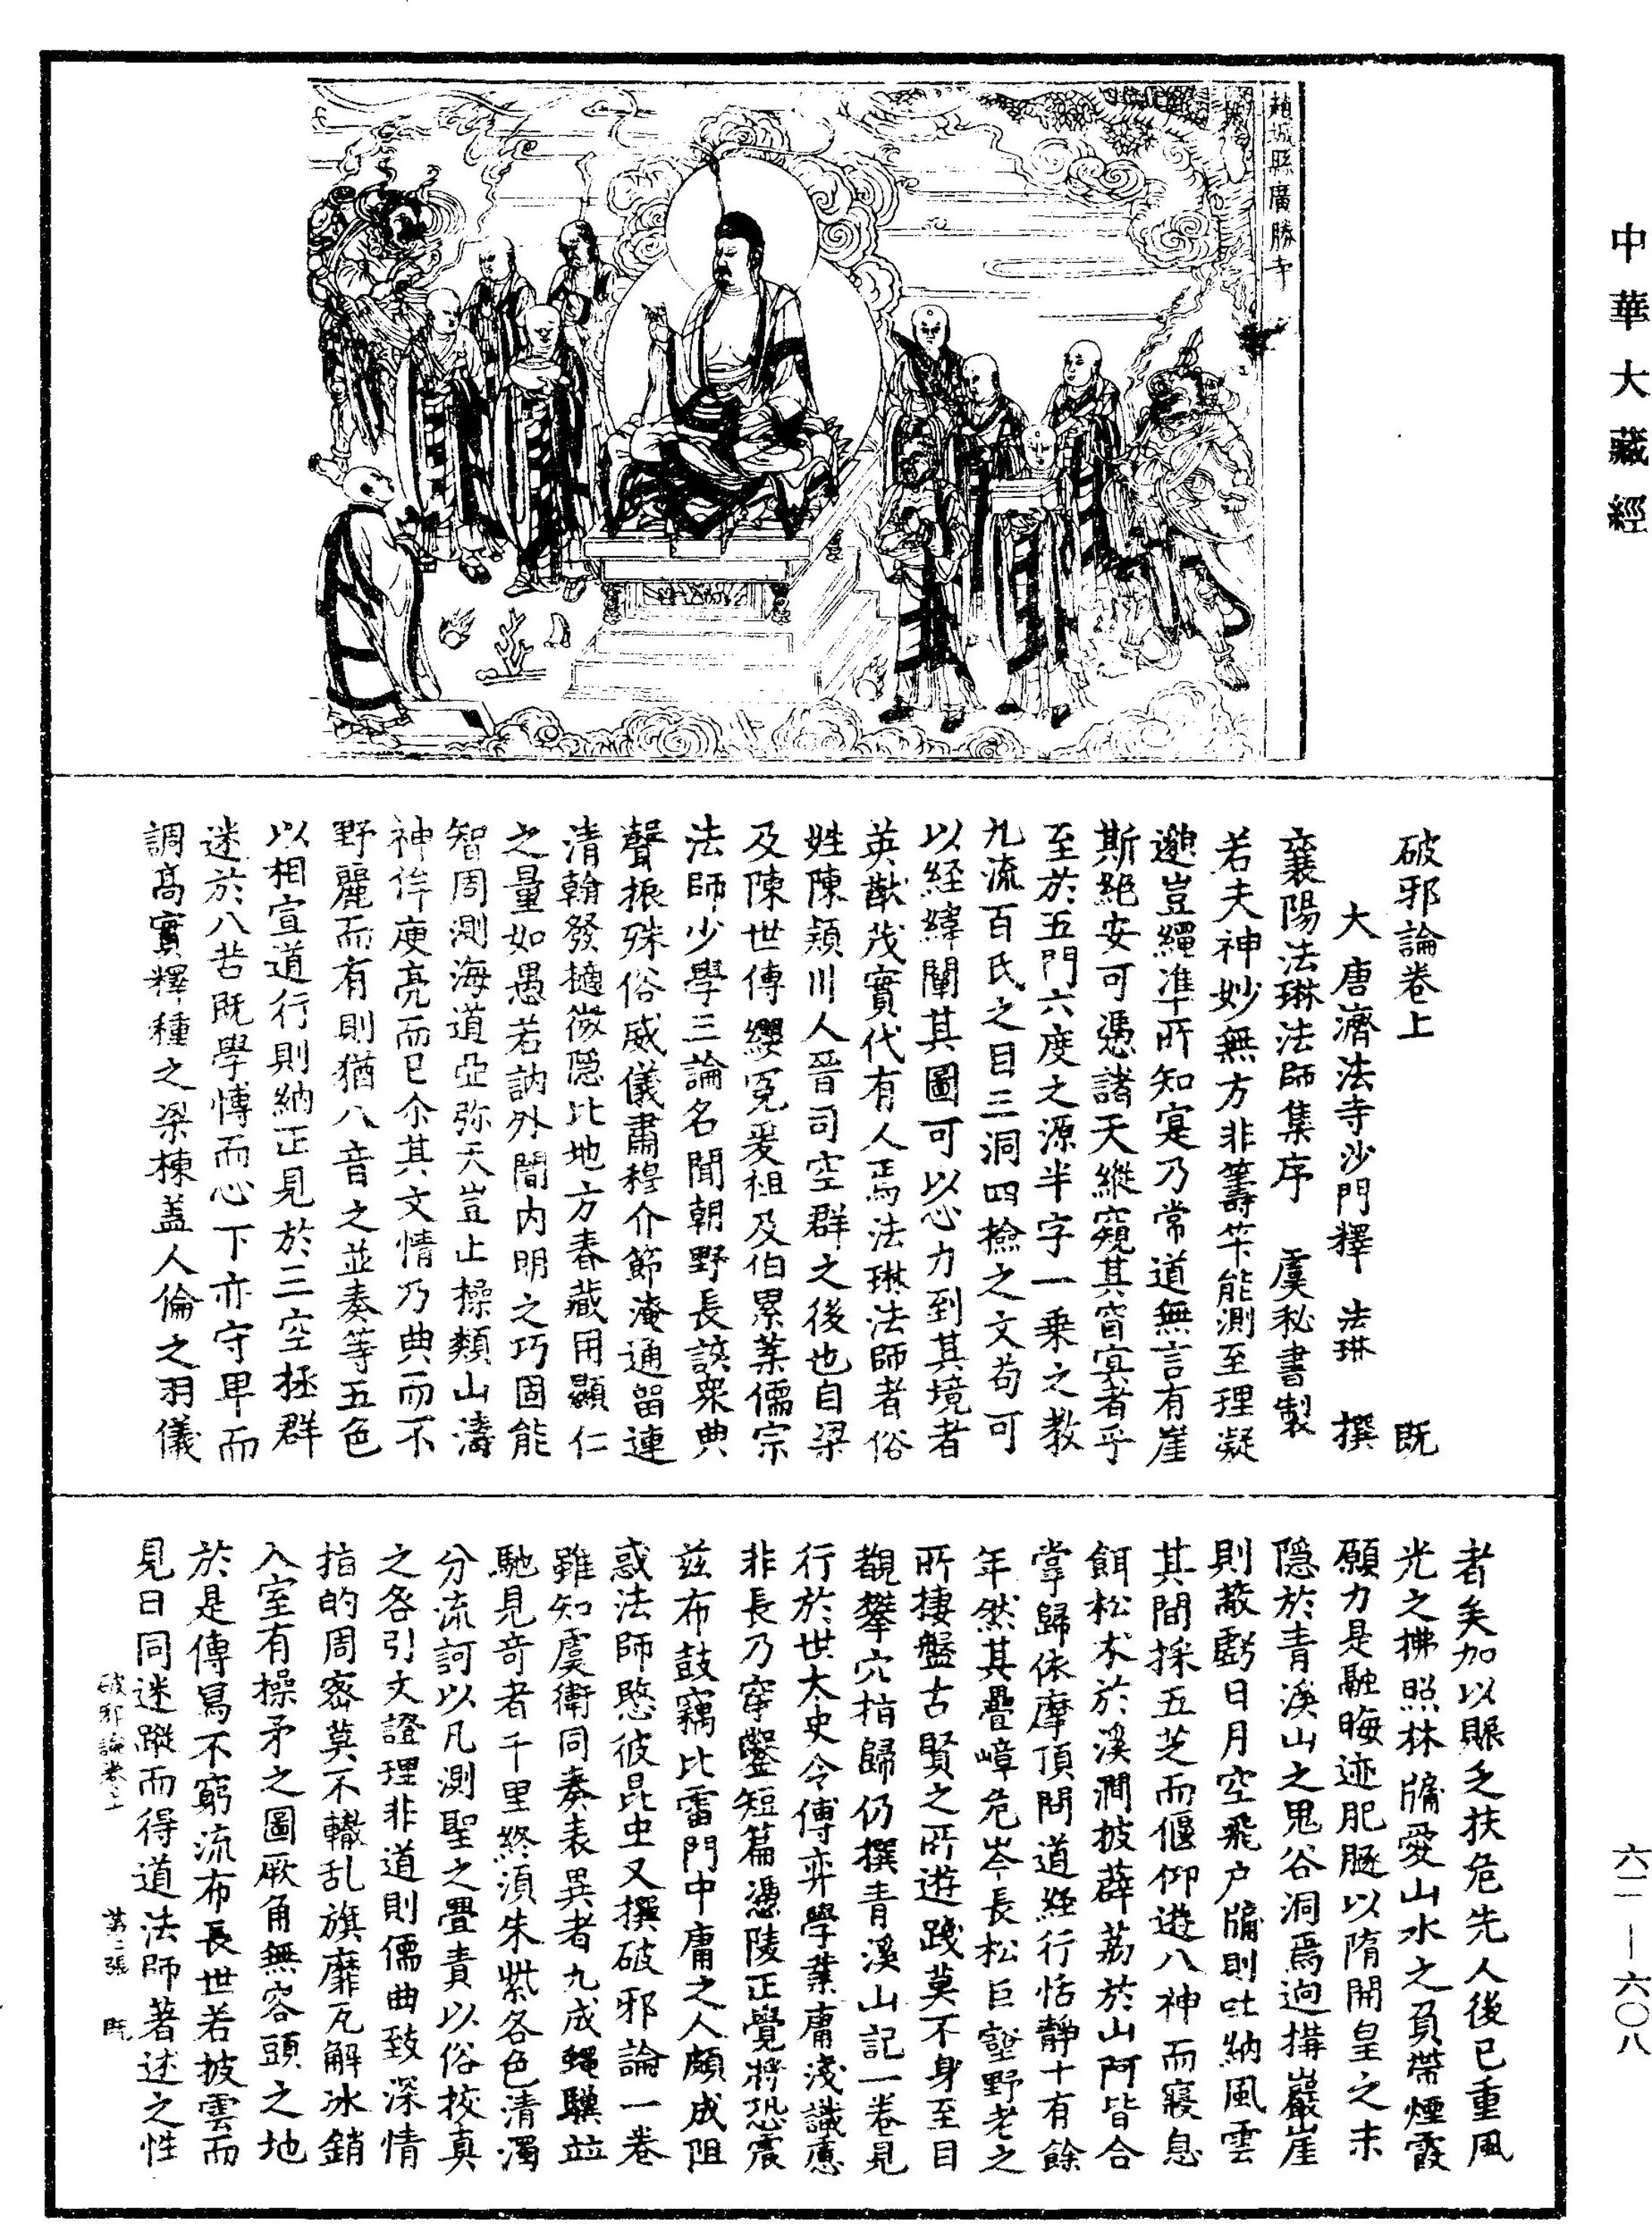 中華大藏經
趙城縣廣勝寺
破邪論卷上 既
大唐濟法寺沙門釋 法琳 撰
襄陽法琳法師集序 虞秘書製
若夫神妙無方非籌筭能測至理凝
邈豈繩準所知寔乃常道無言有崖
斯絕安可憑諸天縱窺其窅寞者乎
至於五門六度之源半字一乗之教
九流百氏之目三洞四檢之文苟可
以經緯闡其圖可以心力到其境者
英猷茂實代有人焉法琳法師者俗
姓陳潁川人晉司空群之後也自梁
及陳世傳纓冕爰祖及伯累葉儒宗
法師少學三論名聞朝野長該衆典
聲振殊俗威儀肅穆介節淹通留連
清翰發擿微隱比地方春藏用顯仁
之量如愚若訥外閴内明之巧固能
智周測海道亞弥天豈止操類山濤
神侔庾亮而已尒其文情乃典而不
野麗而有則猶八音之並奏等五色
以相宣道行則納正見於三空拯群
迷於八苦既學愽而心下亦守卑而
調高實釋種之梁棟盖人倫之羽儀
者矣加以賑乏扶危先人後已重風
光之拂照林牖愛山水之負帶煙霞
願力是融晦迹肥遯以隋開皇之末
隱於青溪山之鬼谷洞焉迥搆巖崖
則蔽虧日月空飛户牖則吐納風雲
其間採五芝而偃仰遊八神而寢息
餌松朮於溪澗披薜荔於山阿皆合
掌歸依摩頂問道經行恬靜十有餘
年然其疊嶂危岑長松巨壑野老之
所棲盤古賢之所遊踐莫不身至目
覩攀穴指歸仍撰青溪山記一卷見
行於世太史令傅弈學業庸淺識慮
非長乃穿鑿短篇憑陵正覺將恐震
兹布鼓竊比雷門中庸之人頗成阻
惑法師愍彼昆虫又撰破邪論一卷
雖知虞衛同奏表異者九成蝿驥並
馳見奇者千里終湏朱紫各色清濁
分流訶以凡測聖之疊責以俗挍真
之咎引文證理非道則儒曲致深情
指的周密莫不轍乱旗靡瓦解冰銷
入室有操矛之圖厥角無容頭之地
於是傳冩不窮流布長世若披雲而
見日同迷蹤而得道法師著述之性
破邪論卷上 第二張 既
六二—六〇八